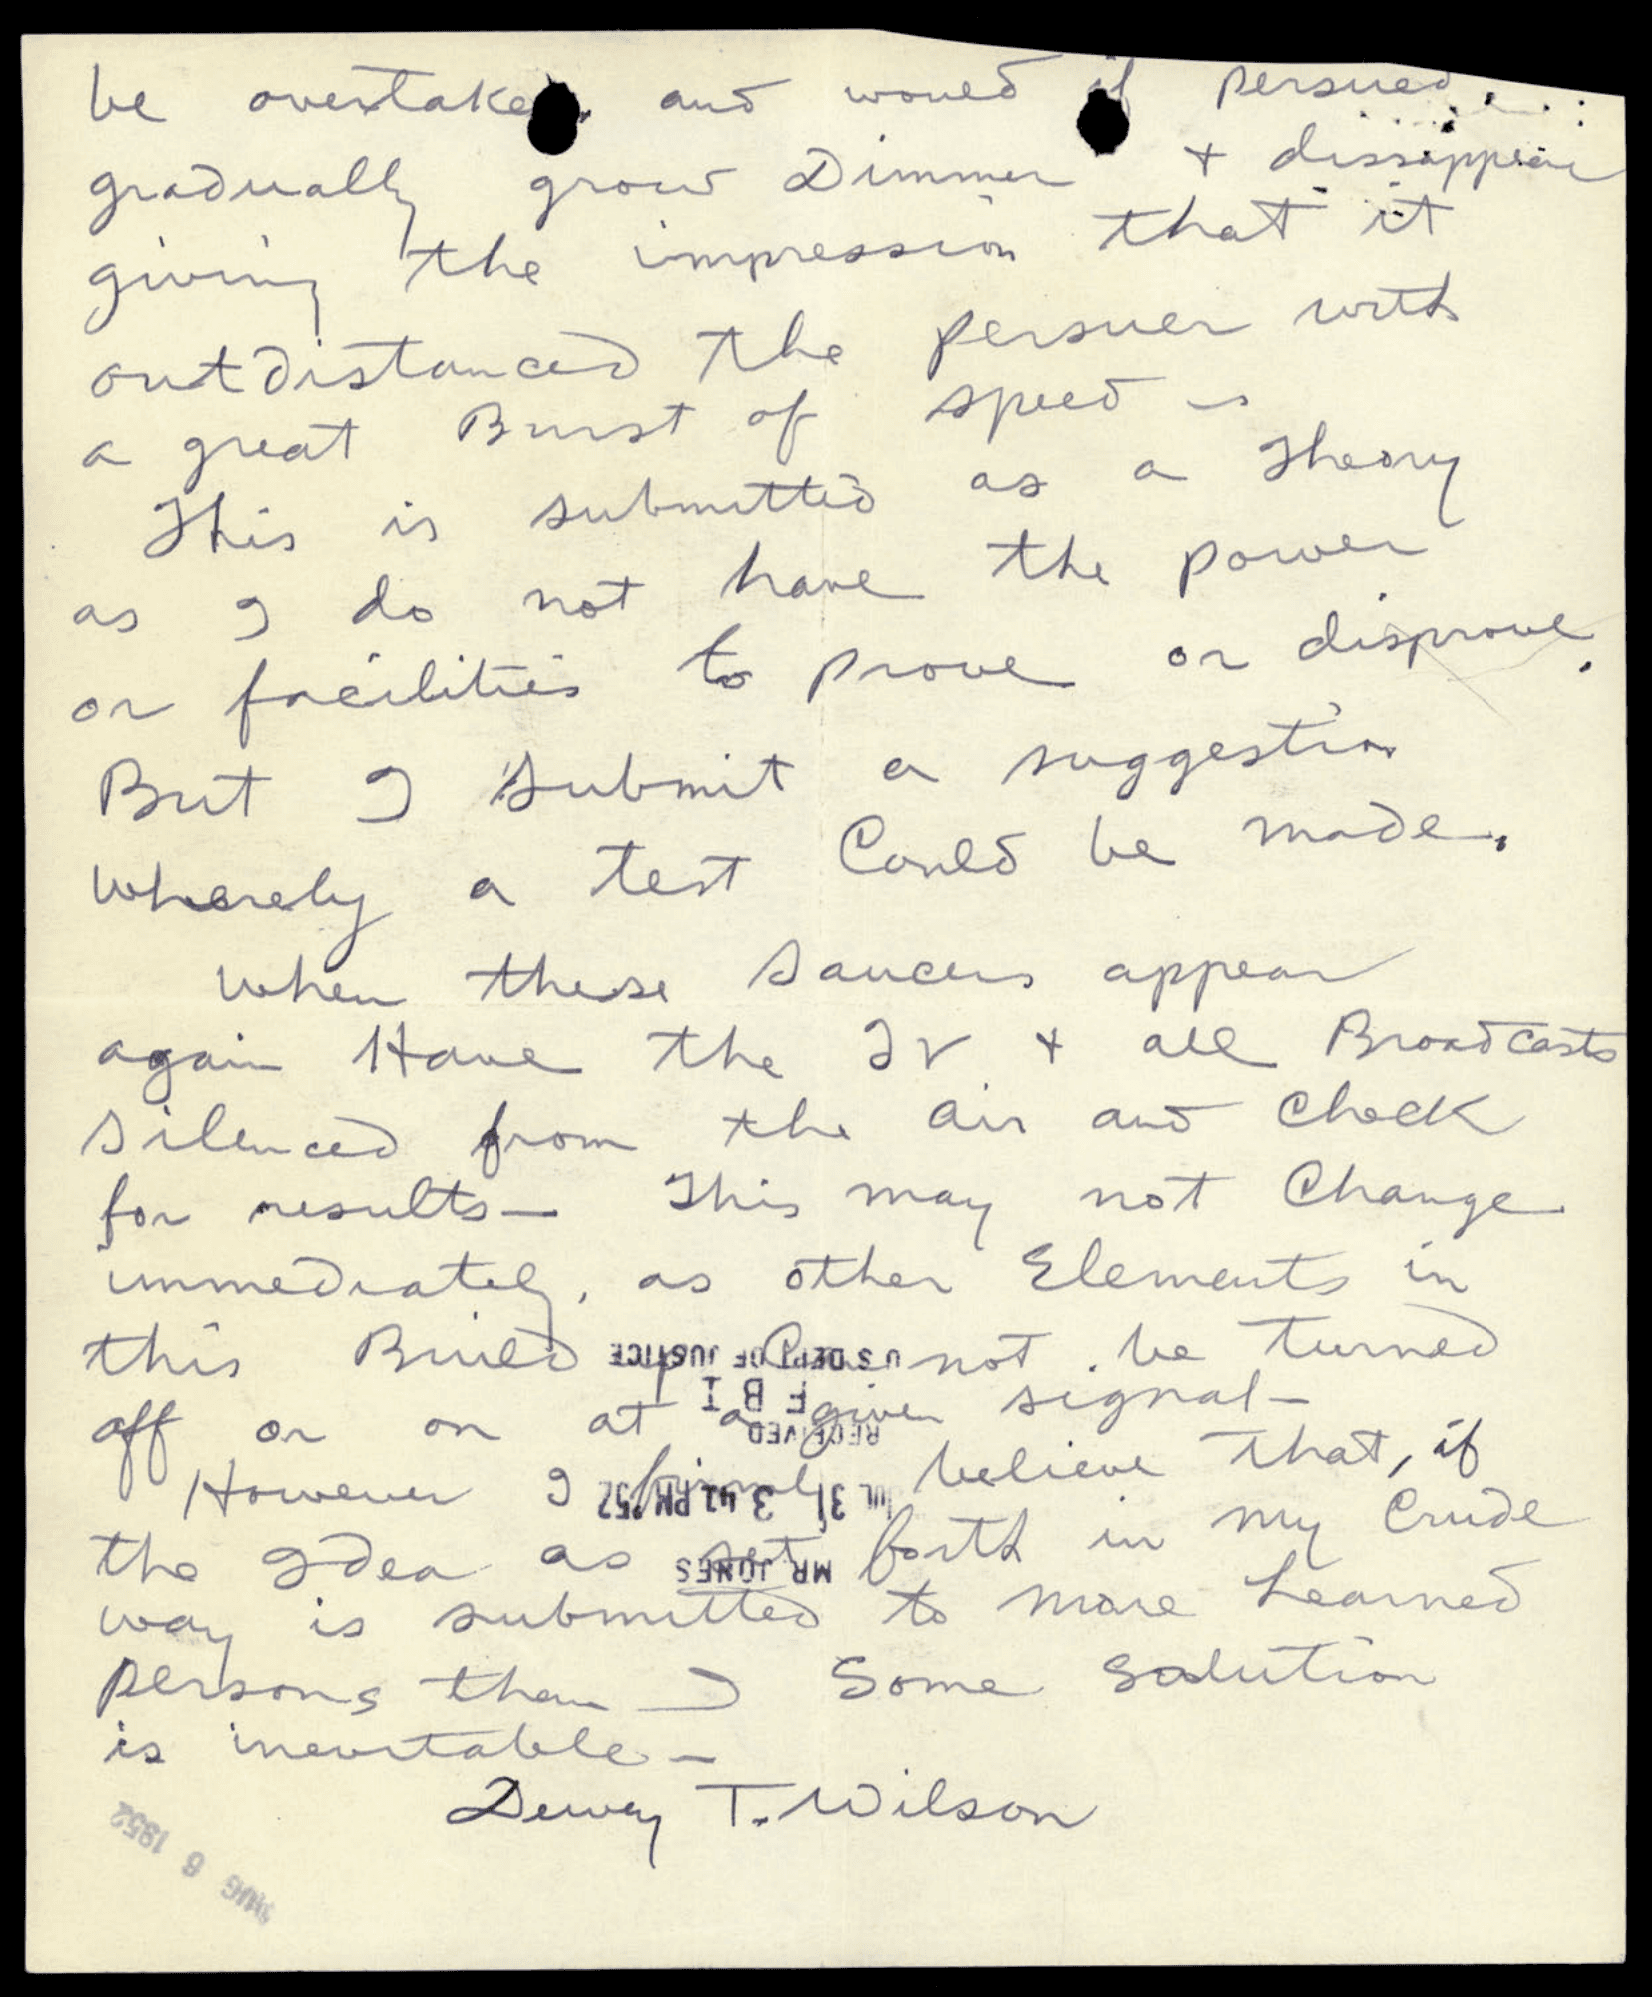 be overtaken. and would if persued
gradually grow Dimmer + dissappear
giving the impression that it
outdistanced the persuer with
a great Burst of speed -
This is submitted as a Theory
as I do not have the power
or facilities to prove or disprove.
But I submit a suggestion
whereby a test Could be made.
when these saucers appear
again Have the TV + all Broadcasts
silenced from the air and check
for results- This may not Change
immediately, as other Elements in
this Build up Can not be turned
off or on at a given signal-
However I firmly believe that, if
the Idea as set forth in my Crude
way is submitted to more Learned
persons than I Some solution
is inevitable -
Dewey T. Wilson
MR JONES
JUL 31 3 41 PM '52
RECEIVED
F B I
U S DEPT OF JUSTICE
AUG 6 1952